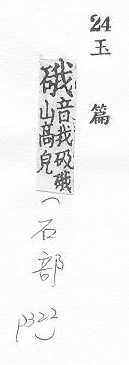 24
玉篇
硪音我硪
山高皃
(石部
P322)